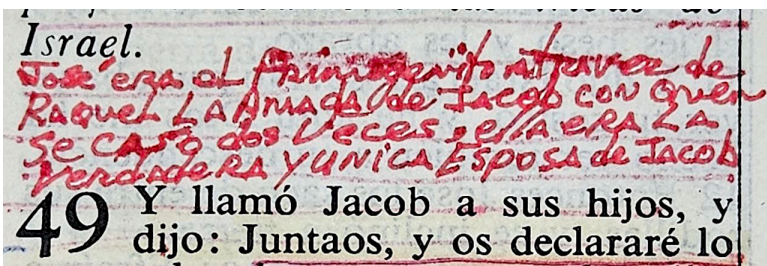 Israel.
José era el primogenito atravez de
RAQUEL LA AMADA de JACOB CON QUIEN
Se CASO dos Veces, ella ERA LA
VERDADERA Y UNICA ESPOSA de JACOB
49 Y llamó Jacob a sus hijos, y
dijo: Juntaos, y os declararé lo